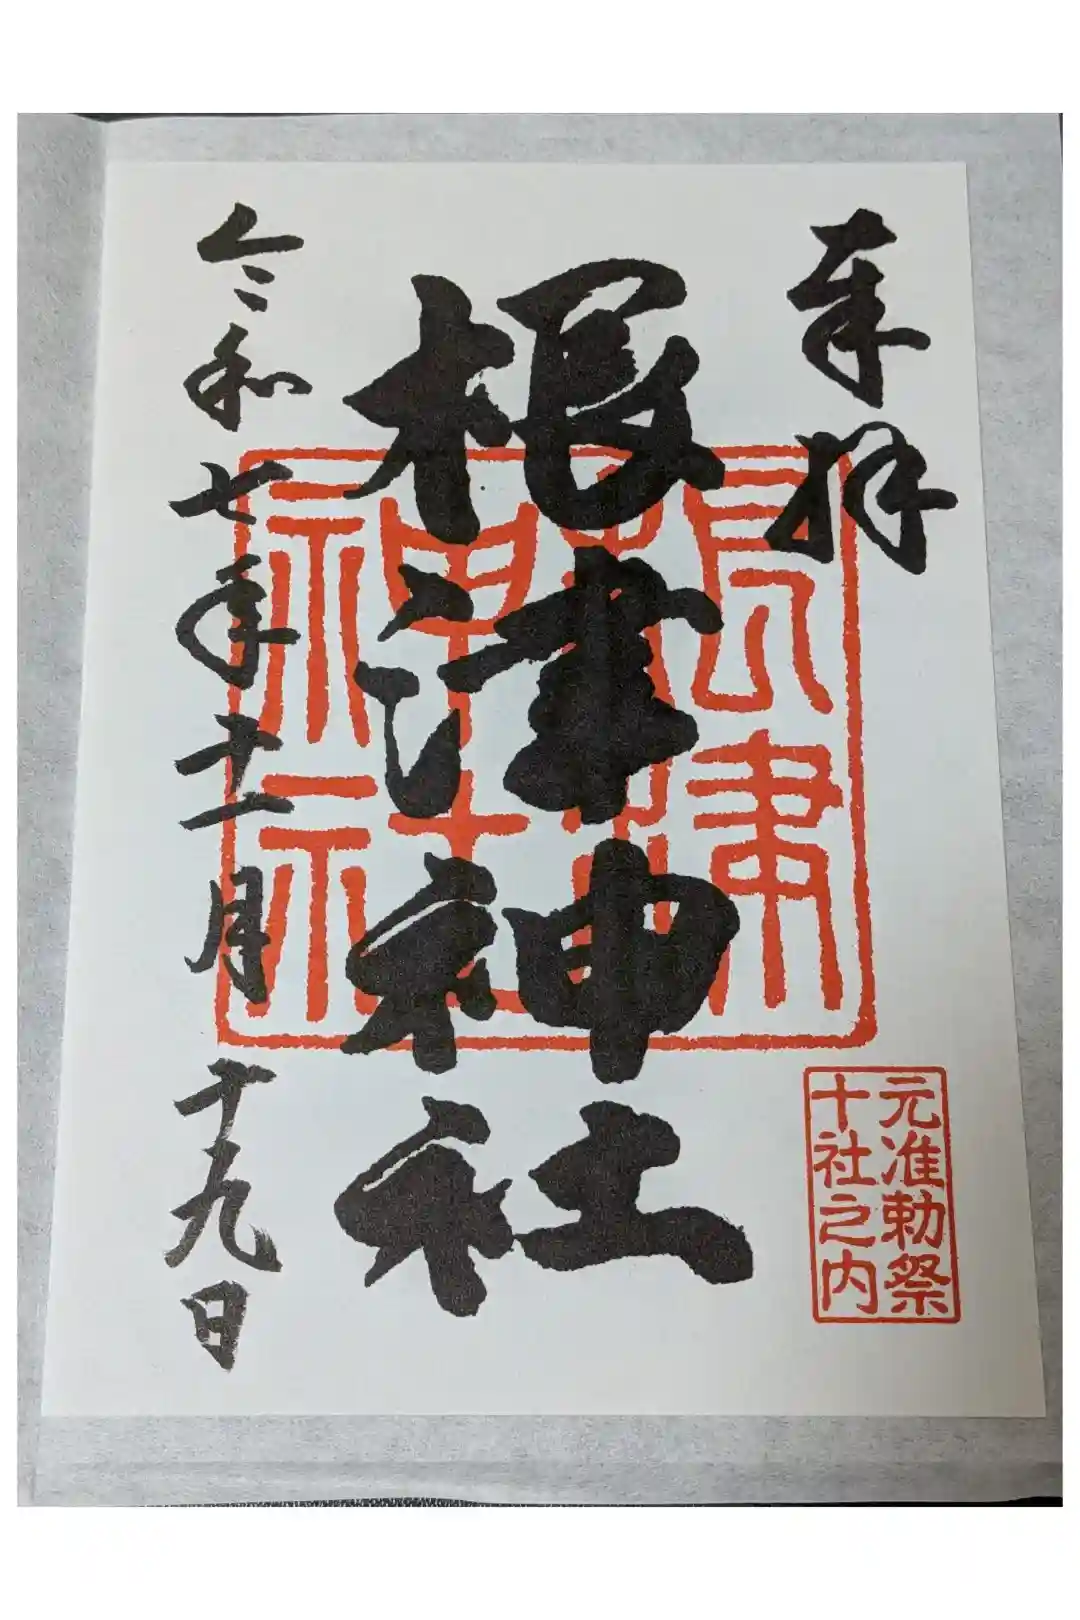 奉拝
元准勅祭
十社之内
根津神社
根津
神社
令和七年十一月十九日